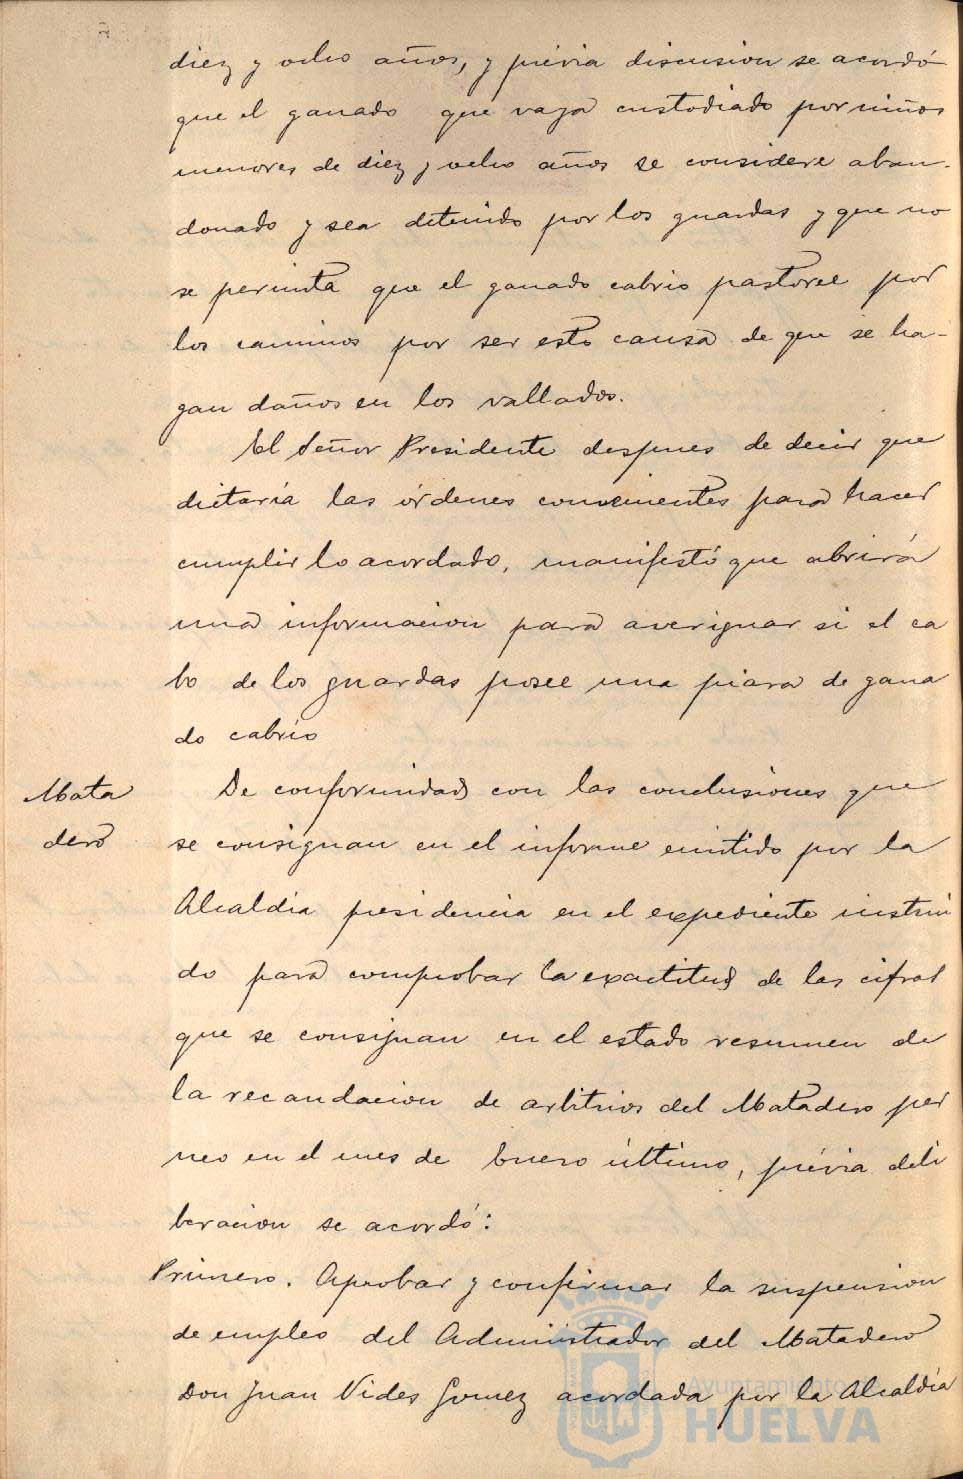 diez y ocho años, y prévia discusion se acordó
que el ganado que vaya custodiado por niños
menores de diez y ocho años se considere aban-
donado y sea detenido por los guardas y que no
se permita que el ganado cabrio pastoree por
los caminos por ser esto causa de que se ha-
gan daños en los vallados.
El Señor Presidente despues de decir que
dictaría las órdenes convenientes para hacer
cumplir lo acordado, manifestó que abrirá
una informacion para averiguar si el ca
bo de los guardas posee una piara de gana
do cabrío
Mata
dero
De conformidad con las conclusiones que
se consignan en el informe emitido por la
Alcaldia presidencia en el expediente instrui
do para comprobar la exactitud de las cifras
que se consignan en el estado resumen de
la recaudacion de arbitrios del Matadero per
neo en el mes de Enero último, prévia deli
beracion se acordó:
Primero. Aprobar y confirmar la suspension
de empleo del Administrador del Matadero
Don Juan Vides Gomez acordada por la Alcaldia
Ayuntamiento
HUELVA